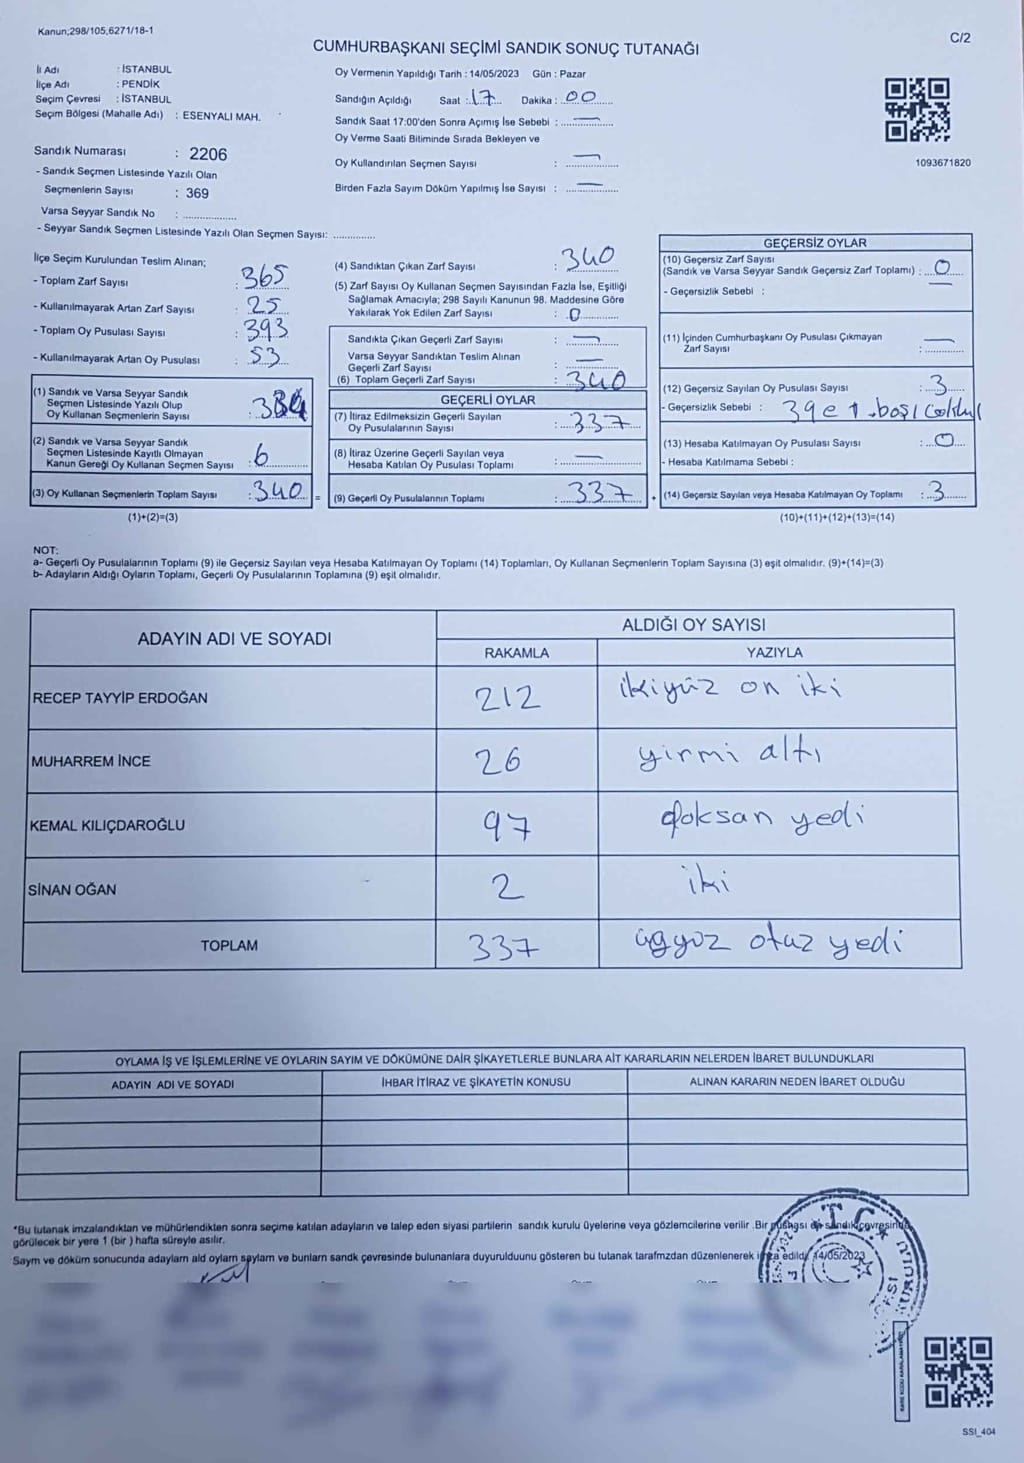 Kanun;298/105,6271/18-1
C/2
CUMHURBAŞKANI SEÇİMİ SANDIK SONUÇ TUTANAĞI
İl Adı : İSTANBUL
İlçe Adı : PENDİK
Seçim Çevresi : İSTANBUL
Seçim Bölgesi (Mahalle Adı) : ESENYALI MAH.
Sandık Numarası : 2206
- Sandık Seçmen Listesinde Yazılı Olan
Seçmenlerin Sayısı : 369
Varsa Seyyar Sandık No : ..................
- Seyyar Sandık Seçmen Listesinde Yazılı Olan Seçmen Sayısı: ..............
Oy Vermenin Yapıldığı Tarih : 14/05/2023 Gün : Pazar
Sandığın Açıldığı Saat : 17 Dakika : 00
Sandık Saat 17:00'den Sonra Açımış İse Sebebi : —
Oy Verme Saati Bitiminde Sırada Bekleyen ve
Oy Kullandırılan Seçmen Sayısı : —
Birden Fazla Sayım Döküm Yapılmış İse Sayısı : —
1093671820
İlçe Seçim Kurulundan Teslim Alınan;
- Toplam Zarf Sayısı : 365
- Kullanılmayarak Artan Zarf Sayısı : 25
- Toplam Oy Pusulası Sayısı : 393
- Kullanılmayarak Artan Oy Pusulası : 53
(1) Sandık ve Varsa Seyyar Sandık
Seçmen Listesinde Yazılı Olup
Oy Kullanan Seçmenlerin Sayısı : 334
(2) Sandık ve Varsa Seyyar Sandık
Seçmen Listesinde Kayıtlı Olmayan
Kanun Gereği Oy Kullanan Seçmen Sayısı : 6
(3) Oy Kullanan Seçmenlerin Toplam Sayısı : 340 =
(1)+(2)=(3)
(4) Sandıktan Çıkan Zarf Sayısı : 340
(5) Zarf Sayısı Oy Kullanan Seçmen Sayısından Fazla İse, Eşitliği
Sağlamak Amacıyla; 298 Sayılı Kanunun 98. Maddesine Göre
Yakılarak Yok Edilen Zarf Sayısı : 0
Sandıkta Çıkan Geçerli Zarf Sayısı : —
Varsa Seyyar Sandıktan Teslim Alınan
Geçerli Zarf Sayısı : —
(6) Toplam Geçerli Zarf Sayısı : 340
GEÇERLİ OYLAR
(7) İtiraz Edilmeksizin Geçerli Sayılan
Oy Pusulalarının Sayısı : 337
(8) İtiraz Üzerine Geçerli Sayılan veya
Hesaba Katılan Oy Pusulası Toplamı : —
(9) Geçerli Oy Pusulalarının Toplamı : 337 +
GEÇERSİZ OYLAR
(10) Geçersiz Zarf Sayısı
(Sandık ve Varsa Seyyar Sandık Geçersiz Zarf Toplamı) : 0
- Geçersizlik Sebebi : —
(11) İçinden Cumhurbaşkanı Oy Pusulası Çıkmayan
Zarf Sayısı : —
(12) Geçersiz Sayılan Oy Pusulası Sayısı : 3
- Geçersizlik Sebebi :
(13) Hesaba Katılmayan Oy Pusulası Sayısı : 0
- Hesaba Katılmama Sebebi :
(14) Geçersiz Sayılan veya Hesaba Katılmayan Oy Toplamı : 3
(10)+(11)+(12)+(13)=(14)
NOT:
a- Geçerli Oy Pusulalarının Toplamı (9) ile Geçersiz Sayılan veya Hesaba Katılmayan Oy Toplamı (14) Toplamları, Oy Kullanan Seçmenlerin Toplam Sayısına (3) eşit olmalıdır. (9)+(14)=(3)
b- Adayların Aldığı Oyların Toplamı, Geçerli Oy Pusulalarının Toplamına (9) eşit olmalıdır.
ADAYIN ADI VE SOYADI
ALDIĞI OY SAYISI
RAKAMLA YAZIYLA
RECEP TAYYİP ERDOĞAN 212 ikiyüz on iki
MUHARREM İNCE 26 yirmi altı
KEMAL KILIÇDAROĞLU 97 doksan yedi
SİNAN OĞAN 2 iki
TOPLAM 337 üçyüz otuz yedi
OYLAMA İŞ VE İŞLEMLERİNE VE OYLARIN SAYIM VE DÖKÜMÜNE DAİR ŞİKAYETLERLE BUNLARA AİT KARARLARIN NELERDEN İBARET BULUNDUKLARI
ADAYIN ADI VE SOYADI İHBAR İTİRAZ VE ŞİKAYETİN KONUSU ALINAN KARARIN NEDEN İBARET OLDUĞU
*Bu tutanak imzalandıktan ve mühürlendikten sonra seçime katılan adayların ve talep eden siyasi partilerin sandık kurulu üyelerine veya gözlemcilerine verilir .Bir nüshası da sandık çevresinde
görülecek bir yere 1 (bir ) hafta süreyle asılır.
Sayım ve döküm sonucunda adaylarn ald oylarn sayları ve bunlarn sandk çevresinde bulunanlara duyurulduunu gösteren bu tutanak tarafmzdan düzenlenerek imza edildi. 14/05/2023
T.C.
SSI_404